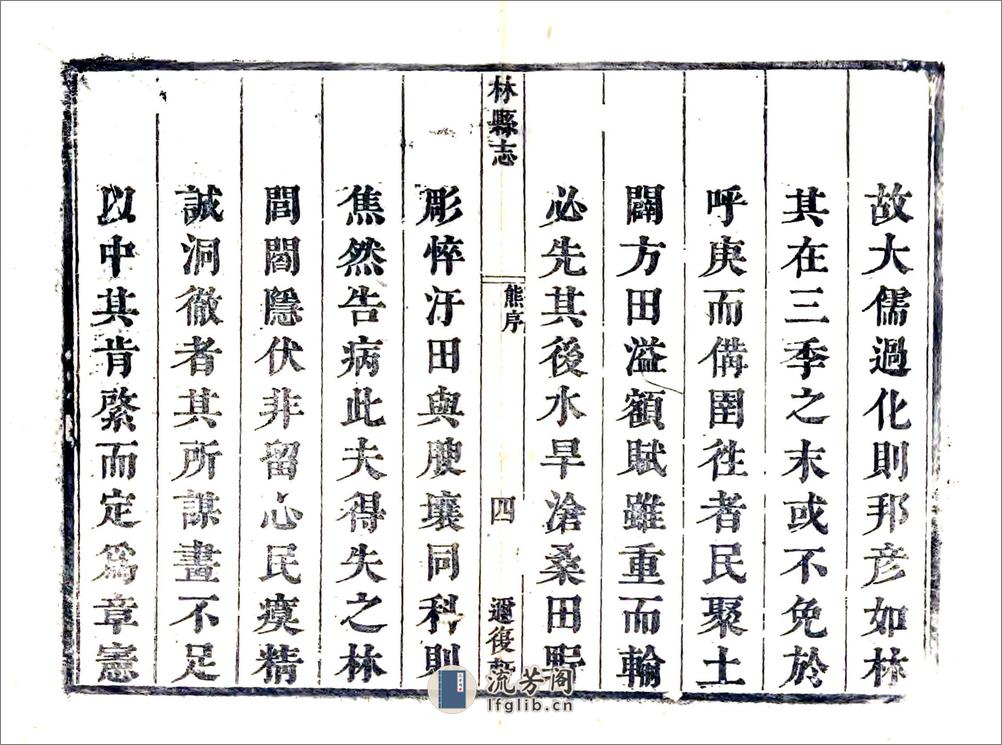 故大儒過化則邦彥如林
其在三季之末或不免於
呼庚而備圉徃者民聚土
闢方田溢額賦雖重而輸
必先其後水旱滄桑田野
林縣志
熊序
四
邇復
彫悴汙田與腴壤同科則
焦然告病此夫得失之林
閭閻隱伏非留心民瘼精
誠洞徹者其所謀畫不足
以中其肯綮而定爲章憲
流芳阁
lfglib.cn